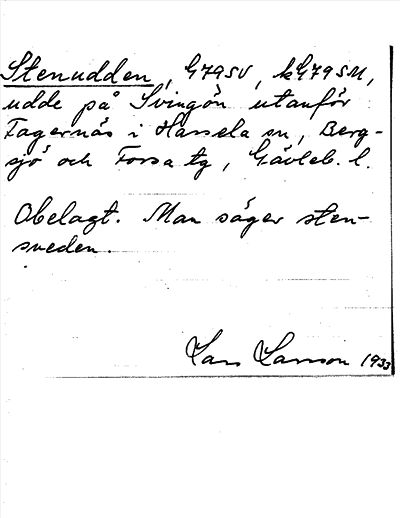 Stenudden, G79SV, kG79SM,
udde på Svingön utanför
Fagernäs i Hassela sn, Berg-
sjö och Forsa tg, Gävleb. l.
Obelagt. Man säger sten-
sveden.
Lars Larsson 1933